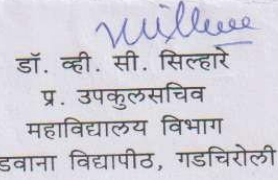 डॉ. व्ही. सी. सिल्हारे
प्र. उपकुलसचिव
महाविद्यालय विभाग
डवाना विद्यापीठ, गडचिरोली